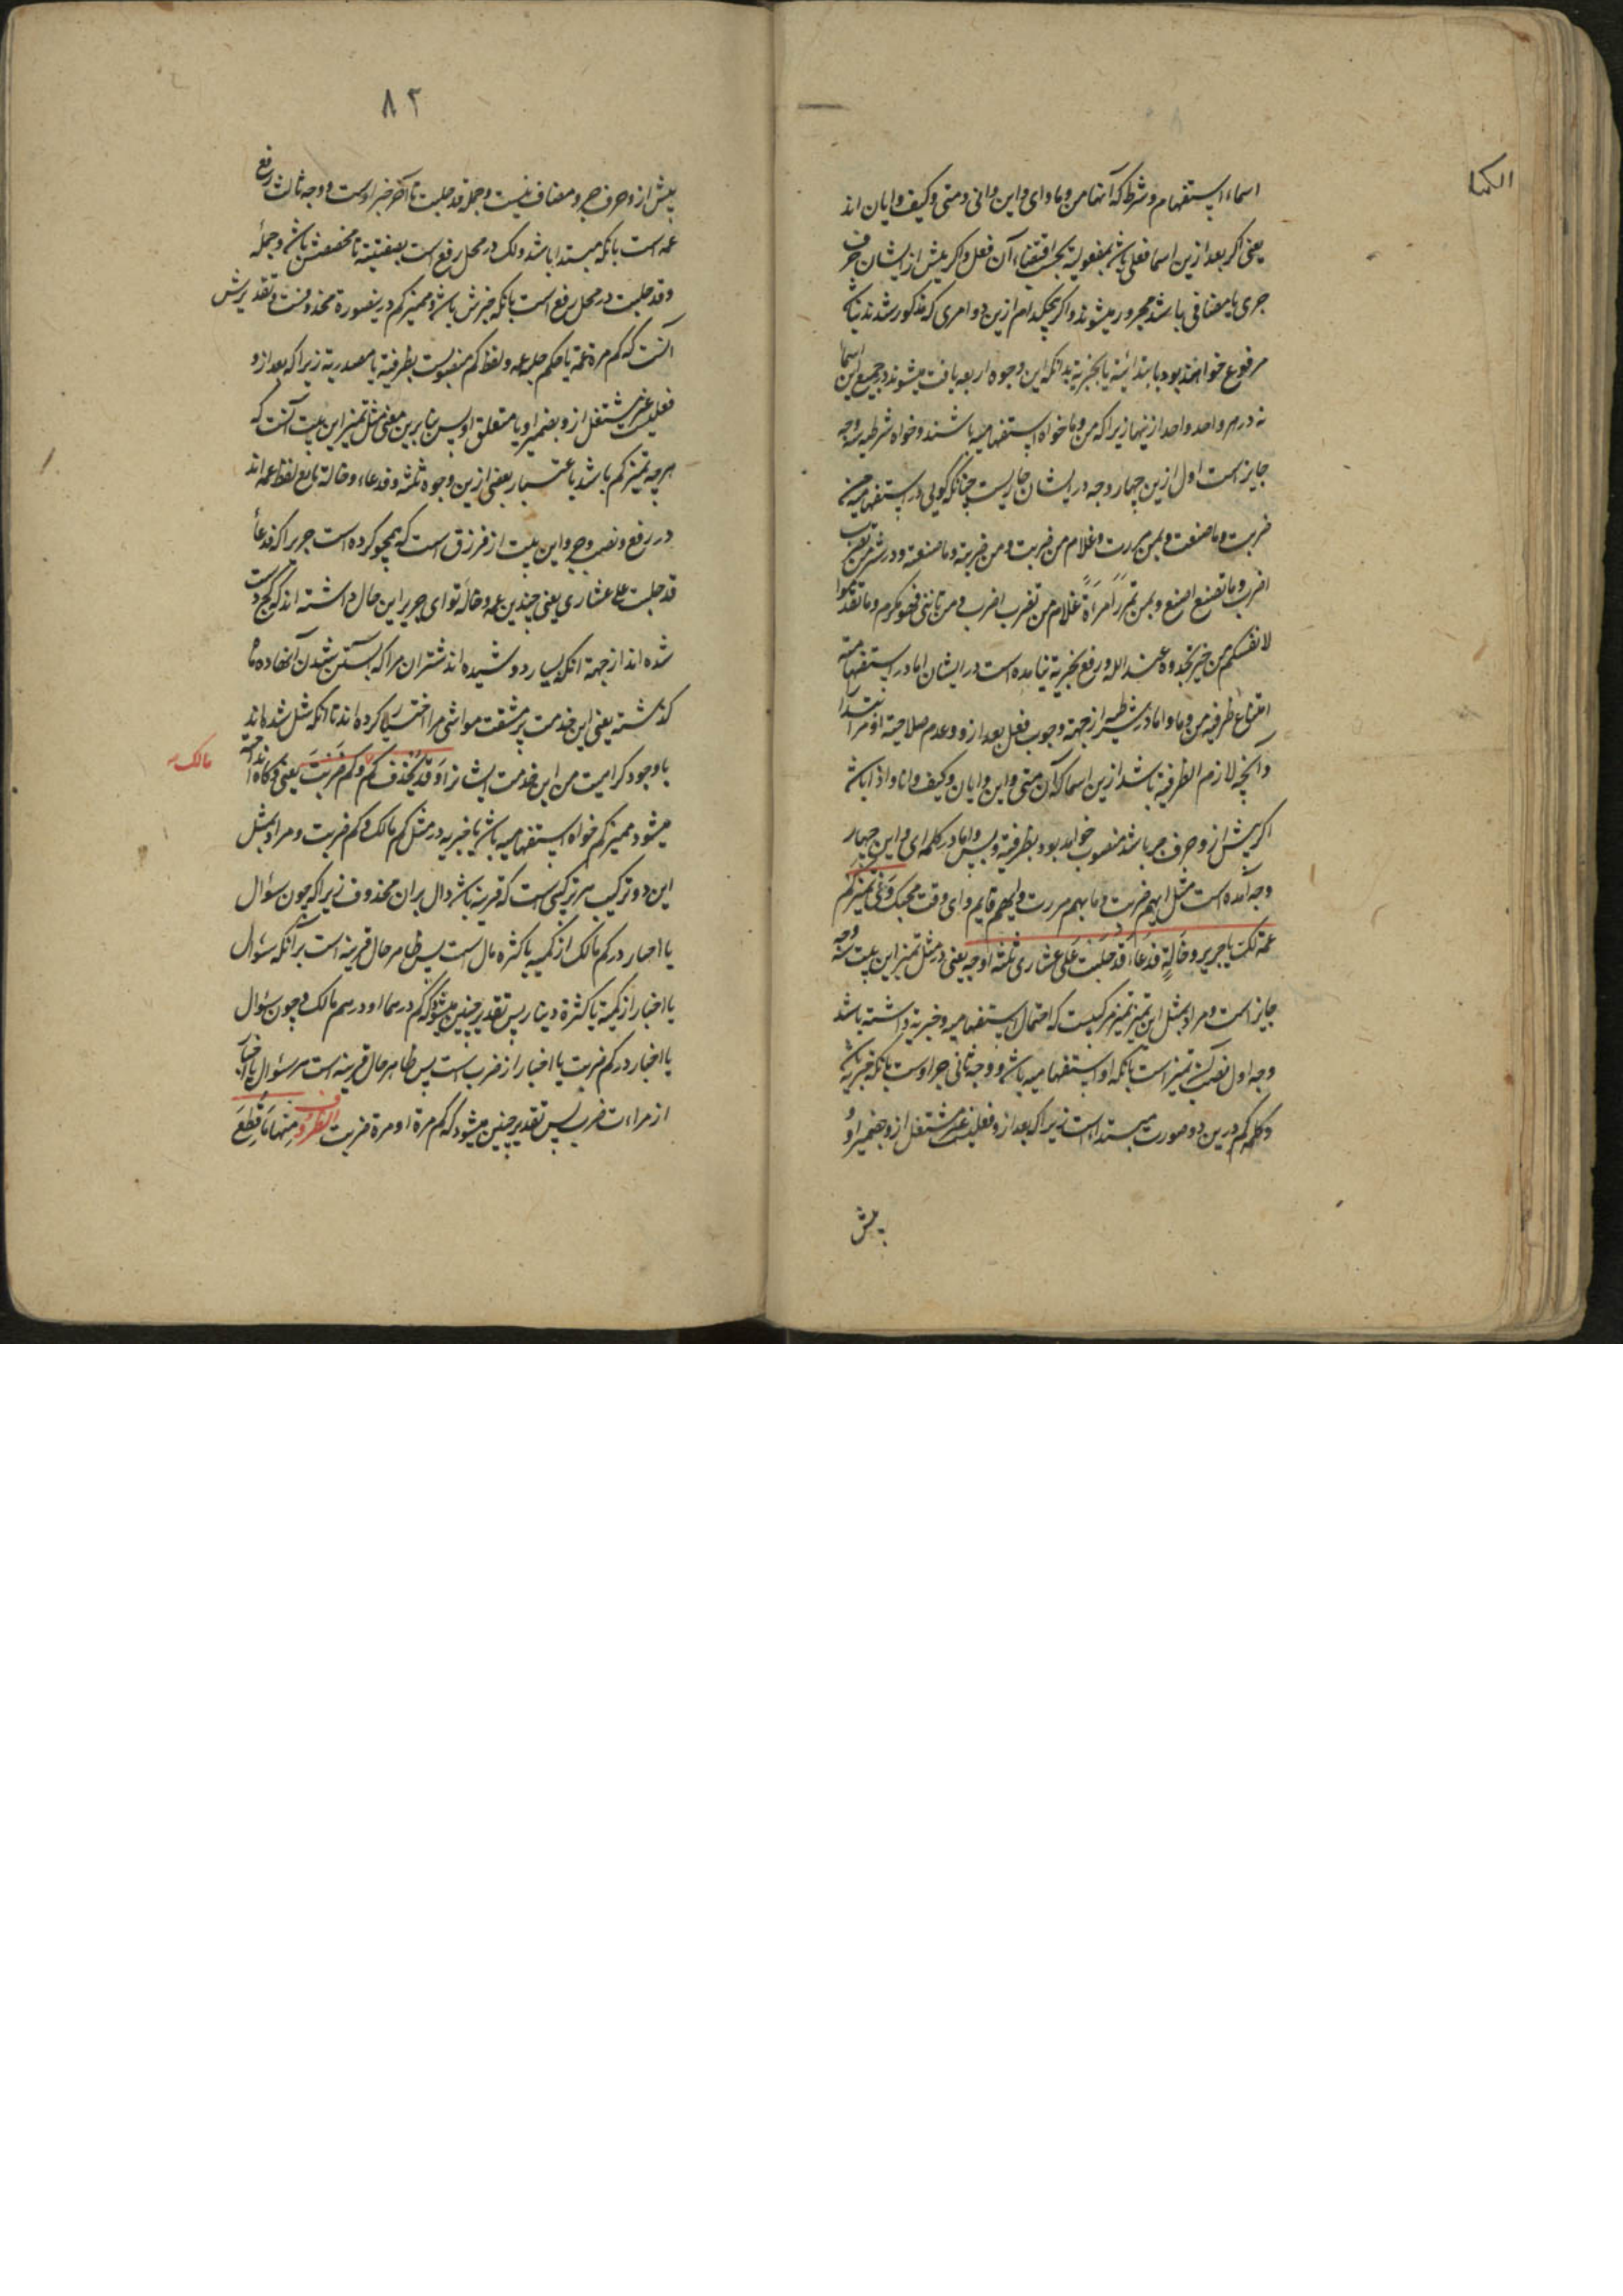 الکنا
اسماء استفهام و شرط که آنها من و ما و ای و این و انی و متی و کیف و ایان اند
یعنی اکر بعد ازین اسما فعلی باشد بمفعولیة بحسب اقتضاء آن فعل و اکر پیش از ایشان حرف
جری یا مضافی باشد مجرور میشوند و اکر هیچکدام ازین دو امری که مذکور شدند نباشد
مرفوع خواهند بود بابتدائیة یا بخبریة بدانکه این وجوه اربعه یافت میشوند در جمیع این اسما
نه در هر واحد واحد از ینها زیرا که من و ما خواه استفهامیه باشند و خواه شرطیه سه وجه
جایز است اول ازین چهار وجه در ایشان جاریست چنانکه کویی در استفهامیه من
ضربت و ما صنعت و بمن مررت و غلام من ضربت و من ضربته و ما صنعته و در شرط من تضرب
اضرب و ما تصنع اصنع و بمن تمرر امرر و غلام من تضرب اضرب و من یاتنی فهو مکرم و ما تقدموا
لانفسکم من خیر تجدوه عند الله و رفع بخبریة نیامده است در ایشان اما در استفهامیة
امتناع ظرفیه من و ما و اما در شرطیه از جهة وجوب فعل بعد ازو و عدم صلاحیة او مر ابتدا را
و آنچه لازم الظرفیة باشد ازین اسما که آن متی و این و ایان و کیف و انا و اذا باشد
اکر پیش ازو حرف جر باشد منصوب خواهد بود بظرفیة و بس و اما در کلمه ای و این چهار
وجه آمده است مثل ایهم ضربت و بایهم مررت و ایهم قایم و ای وقت مجیک و فی تمییز کم
عمة لک یا جریر و خالة فدعاء قد حلبت علی عشاری ثلثة اوجه یعنی در مثل تمییز این بیت سه وجه
جایز است و مراد بمثل این تمییز تمییز هر کمیست که احتمال استفهامیه و خبریة داشته باشد
وجه اول نصب تمییز است بانکه او استفهامیه باشد و وجه ثانی جر اوست بانکه خبریه باشد
و کلمه کم درین دو صورت مبتداء است زیرا که بعد ازو فعلیست غیر مشتغل ازو بضمیر او و
پیش
۸۲
پیش ازو حرف جر و مضاف نیست و جمله قد حلبت تا آخر خبر اوست و وجه ثالث رفع
عمه است بانکه مبتدا باشد و لک در محل رفع است بصفیته تا مخصصش باشد و جمله
و قد حلبت در محل رفع است بانکه خبرش باشد و ممیز کم درینصورة محذوفست و تقدیرش
آنست که کم مرة عمة یا حکم حلبه عمه و لفظ کم منصوبست بظرفیة یا مصدریة زیرا که بعد ازو
فعلیست غیر مشتغل ازو بضمیر او یا متعلق او پس بنا برین معنی مثل تمییز این بیت آنست که
هر چه تمییز کم باشد باعتبار بعضی ازین وجوه ثلثه و فدعاء و خالة تابع لفظ عمه اند
در رفع و نصب و جر و این بیت از فرزدق است که هجو کرده است جریر را که فدعاء
قد حلبت علی عشاری یعنی چندین عمه و خاله تو ای جریر این حال داشته اند که کج دست
شده اند از جهة انکه بسیار دوشیده اند شتران مرا که آبستن شدن آنها ده ماه
کذشته یعنی این خدمت پر مشقت مواشی مرا اختیار کرده اند تا انکه شل شده اند
با وجود کراهیت من این خدمت ایشانرا و قد یحذف فی کم و کم ضربت یعنی و کاه انداخته
مالک
میشود ممیز کم خواه استفهامیه باشد یا خبریه در مثل کم مالک و کم ضربت و مراد بمثل
این دو ترکیب هر ترکیبی است که قرینه باشد دال بران محذوف زیرا که چون سؤال
یا اخبار در کم مالک از کمیه یا کثرة مال است پس ظاهر حال قرینه است بر آنکه سؤال
یا اخبار از کمیة یا کثرة دینار پس تقدیر چنین میشود که کم درهما او درهم مالک و چون سؤال
یا اخبار در کم ضربت یا اخبار از ضرب است پس ظاهر حال قرینه است مر سؤال یا اخبار
از مرات ضرب پس تقدیر چنین میشود که کم مرة او مرة ضربت الظروف منها ما قطع